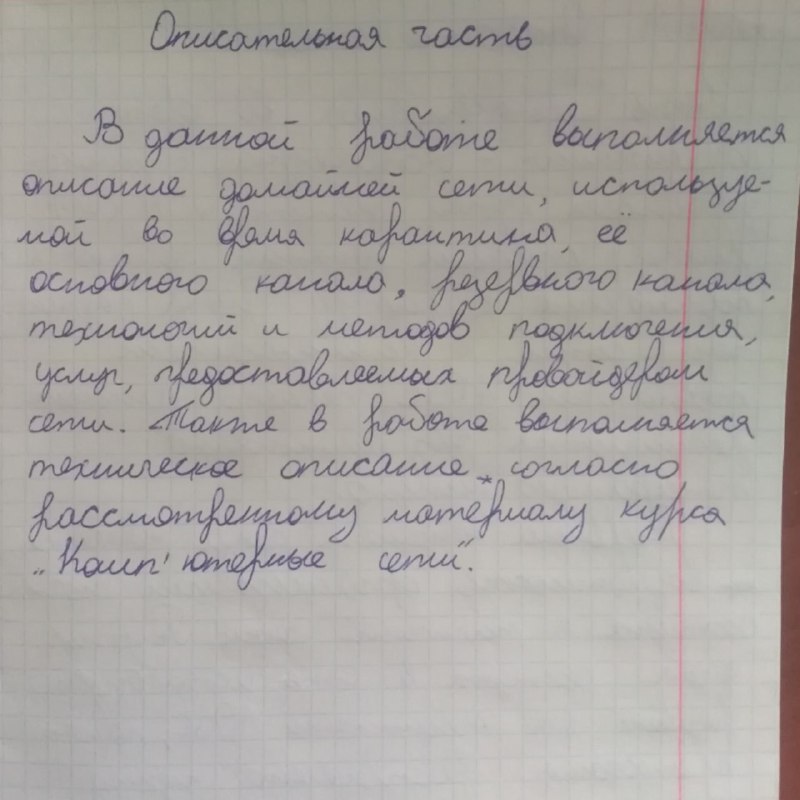 Описательная часть
В данной работе выполняется
описание домашней сети, используе-
мой во время карантина, её
основного канала, резервного канала,
технологий и методов подключения,
услуг, предоставляемых провайдером
сети. Также в работе выполняется
техническое описание согласно
рассмотренному материалу курса
„Комп'ютерные сети".